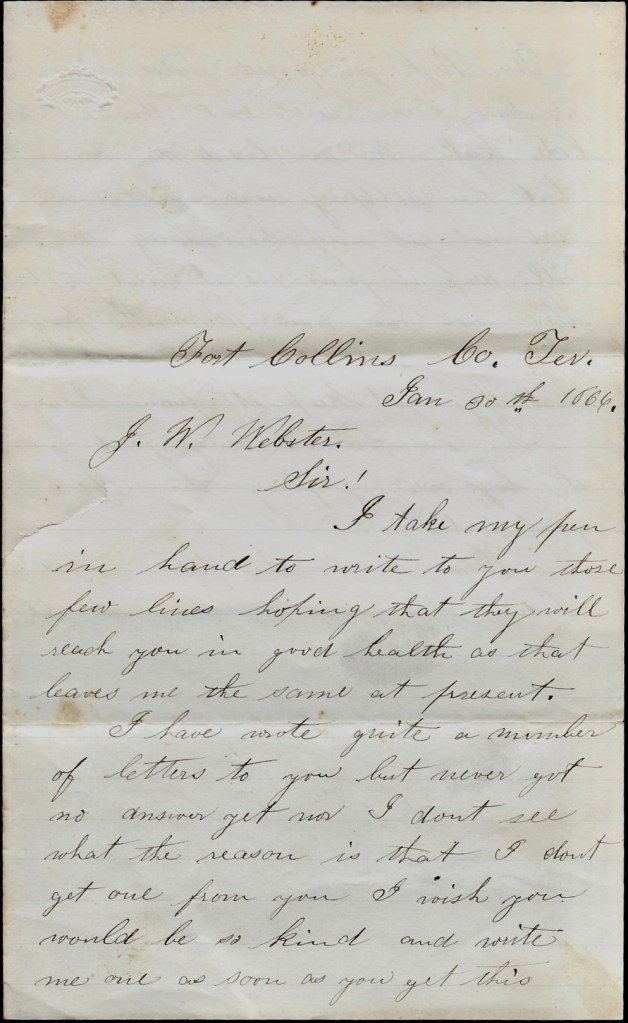 Fort Collins Co. Ter.
Jan 30th 1866.
J. W. Webster.
Sir!
I take my pen
in hand to write to you those
few lines hoping that they will
reach you in good health as that
leaves me the same at present.
I have wrote quite a number
of letters to you but never got
no answer yet nor I dont see
what the reason is that I dont
get one from you I wish you
would be so kind and write
me one as soon as you get this